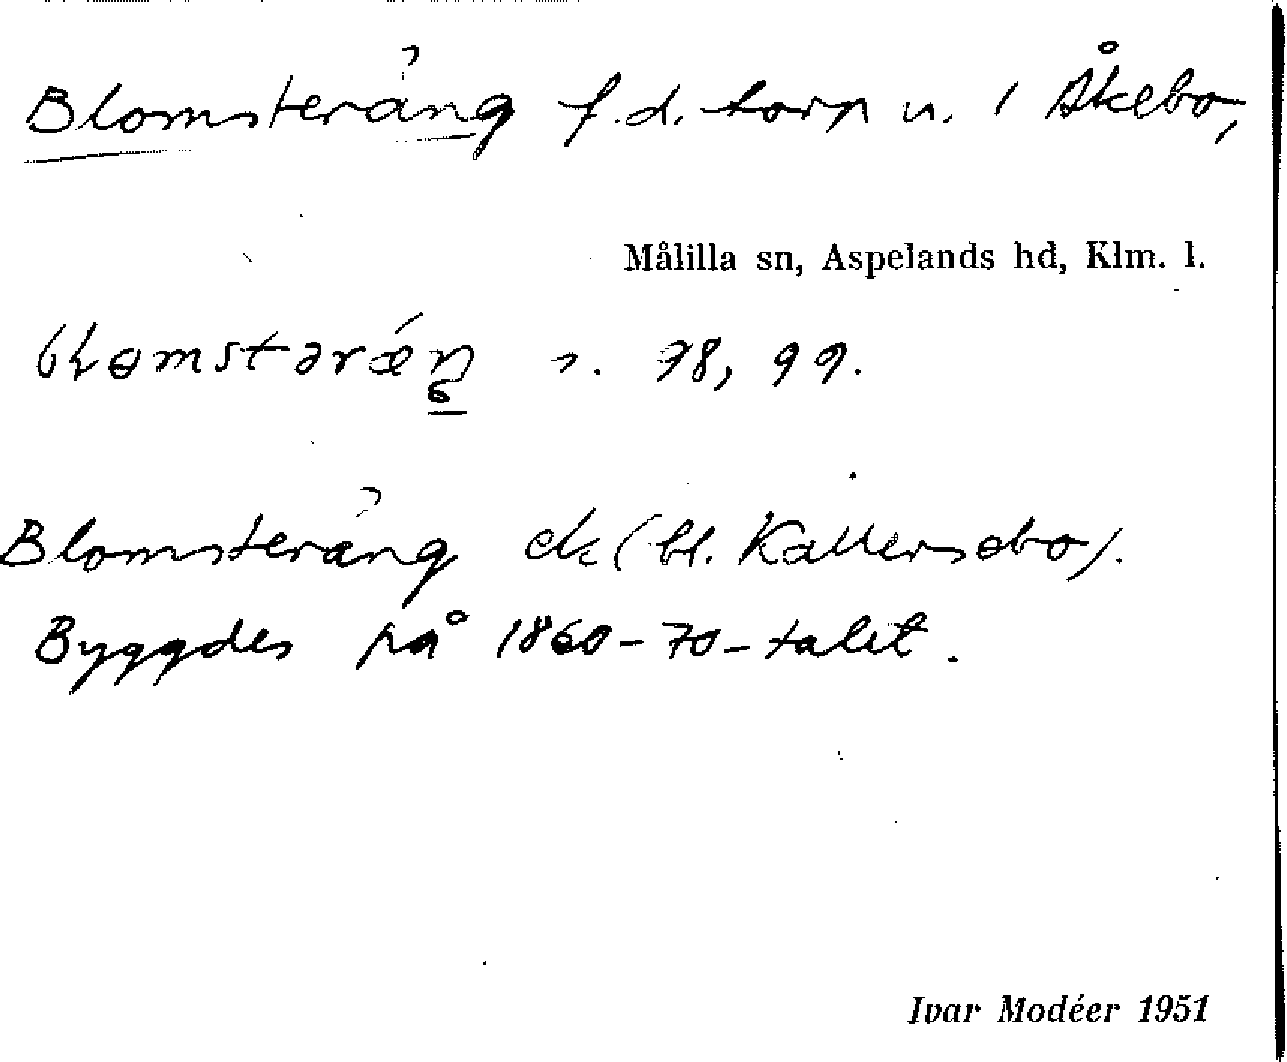 Blomsteräng f.d. torp u. 1 Åkebo,
Målilla sn, Aspelands hd, Klm. l.
s. 98, 99.
Blomsteräng ek (bl. Källersebo).
Byggdes på 1860-70-talet.
Ivar Modéer 1951